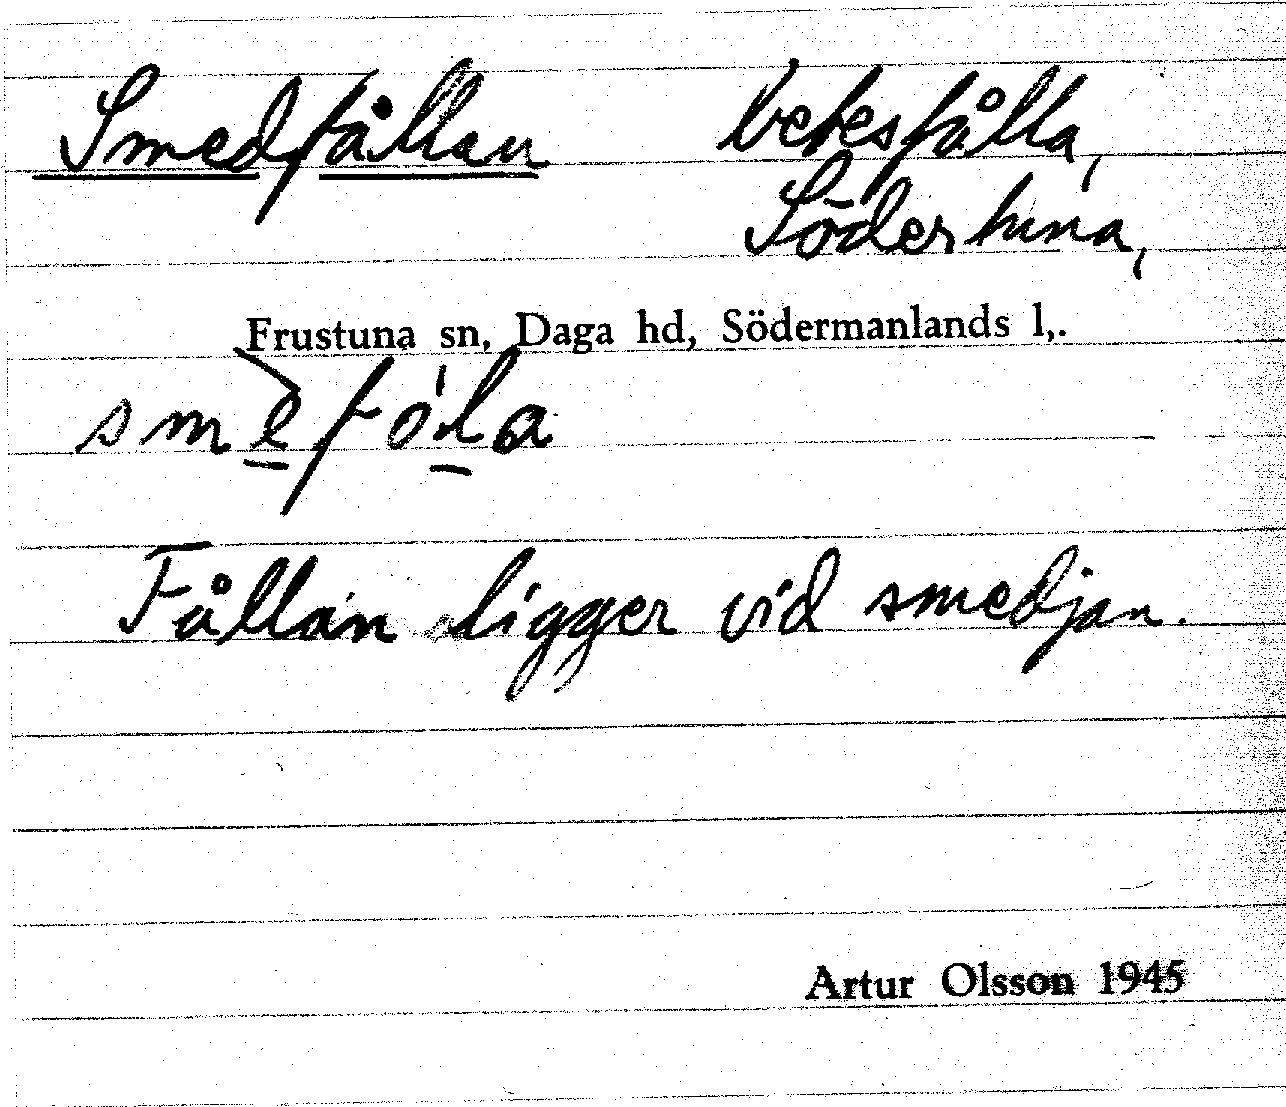 Smedfållan betesfålla,
Södertuna,
Frustuna sn, Daga hd, Södermanlands l,.
smè̱fó̱la
Fållan ligger vid smedjan.
Artur Olsson 1945